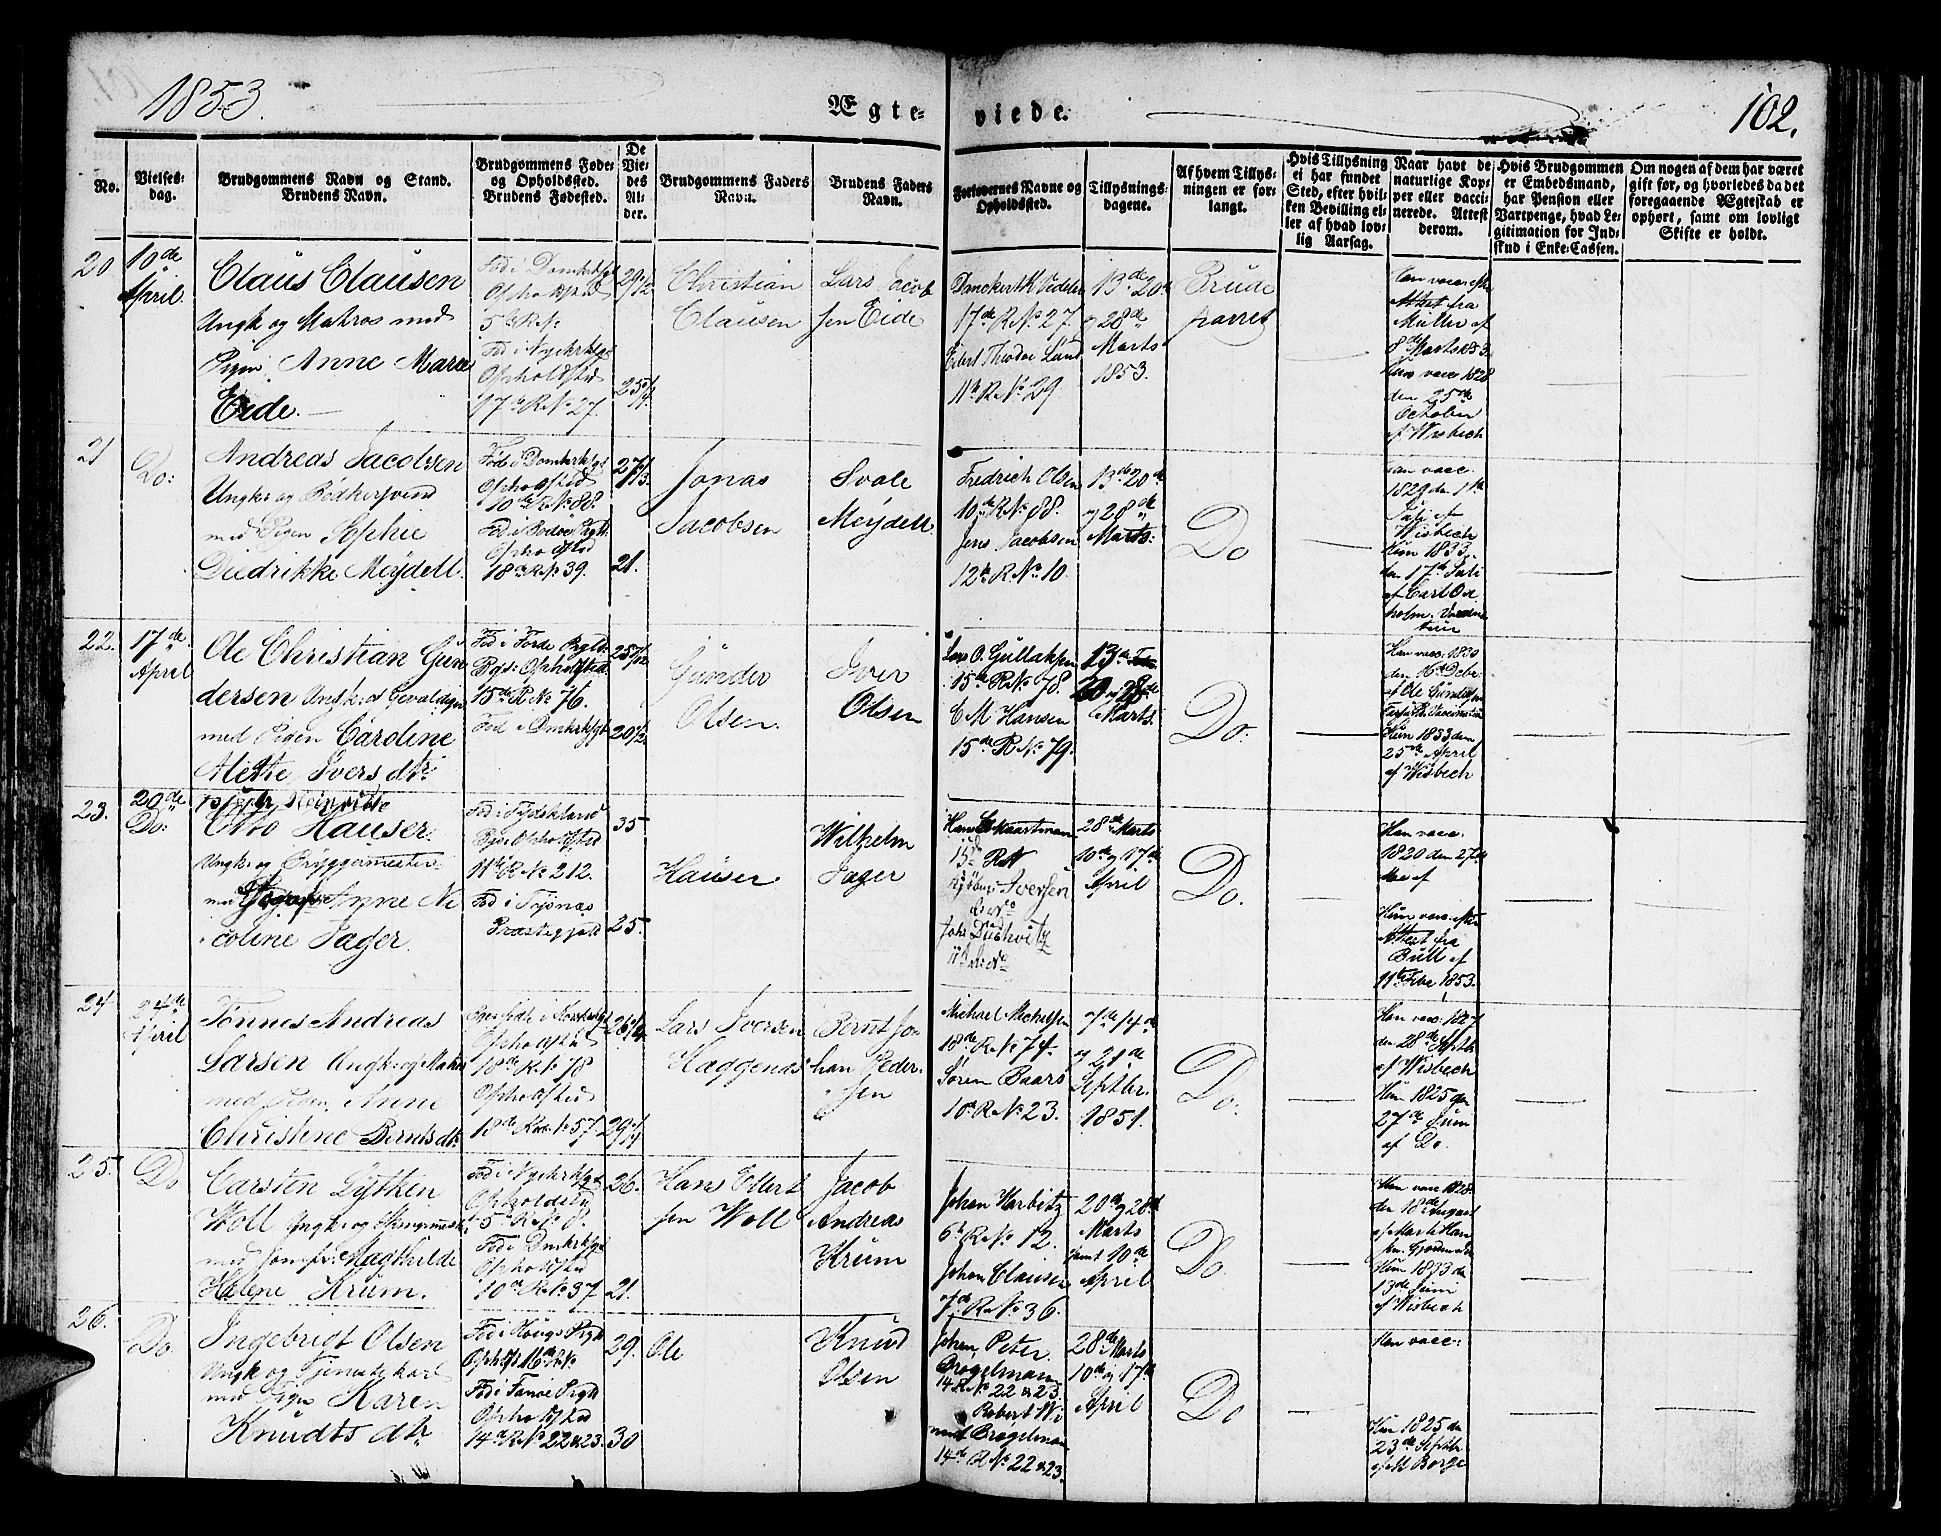 1853.
Ægte-
viede.
102.
No.
Vielses-
dag.
Brudgommens Navn og Stand.
Brudens Navn.
Brudgommens Føde-
og Opholdssted.
Brudens Fødested.
De
Vie-
des
Al-
der.
Brudgommens Faders
Navn.
Brudens Faders
Navn.
Forlovernes Navne og
Opholdssted.
Tillysnings-
dagene.
Af hvem Tillys-
ningen er for-
langt.
Hvis Tillysning
ei har fundet
Sted, efter hvil-
ken Bevilling el-
ler af hvad lov-
lig Aarsag.
Naar havt de
naturlige Kop-
per eller vacci-
nerede. Attest
derom.
Hvis Brudgommen
er Embedsmand,
har Pension eller
Vartpenge, hvad Le-
gitimation for Ind-
skud i Enke-Cassen.
Om nogen af dem har været
gift før, og hvorledes da det
foregaaende Ægteskab er
ophørt, samt om lovligt
Skifte er holdt.
20
10de
April.
Claus Clausen
Ungk og Matros med
Pigen Anne Marie
Eide.
Fød i Domkrksg
Opholdsted
Fød i Nyekrksg
Opholdsted
17de R No 27.
Christian
Clausen
Lars Jacob
sen Eide
17de R No 27.
11te R No 29
13de 20de
og 28de
Marts
1853.
Brude
parret
Han vacc. efter
Attest fra
Müller af
8de Marts 1853
Hun vacc 1828
den 25de
October
af Wisbech
21
Do:
Andreas Jacobsen
Ungkr og Bødkersvend
med Pigen Sophie
Diedrikke Meÿdell.
Fød i Domkrksg
Opholdsted
10de R No 88.
Fød i Bodøe Pgjld
Opholdsted
18de R No 39.
21.
Jonas
Jacobsen
Svale
Meÿdell.
Fredrich Olsen
10de R No 88.
Jens Jacobsen
12te R No 10.
13de 20de
og 28de
Marts:
Do
Han vacc.
1829 den 11te
Juli af
Wisbech
Hun 1833
den 17de Juli
af Carl Ove
holm. Vaccina
22.
17de
April
Ole Christian Gun
dersen Ungk: og Gevaldiger
med Pigen Caroline
Mette Ivers dtr.
Fød i Førde Pgjld:
15de R No 76.
Fød i Dmkrksgt
Gunder
Olsen.
Iver
Olsen
Lars O. Gullaksen
15de R No 78.
C M Hansen
15de R No 79.
13de
20 og 28de
Marts.
Do.
Han vacc: 1830
den 16de Debr
Hun 1833 den
25de April
af Wisbech
23.
20de
Do:
Otto Hauser.
Ungk: og Bryggermester
Anne Ni
coline Jager.
Fød i Tydskland
Opholdsted
11te R No 212.
Fød i Tysnæs
Præstegjeld
35
25.
Hauser
Wilhelm
Jager
15de R N
Iversen
28de Marts
10de og 17de
April
Do.
Han vacc:
1820 den 27de
Mai af
Hun vacc: efter
Attest fra
Bull af
11te Febr 1853.
24
24de
April
Tønnes Andreas
Larsen Ungk: og Matros
med Pigen Anne
Christine Berntsdtr
Opholdsted
18de R No 78
Opholdsted
18de Rode No 57
Lars Iversen
Haggenæs
Bernt Jo-
han Peder-
sen
Michael Mickelsen
18de R No 74.
Søren Baars
10de R No 23.
7de 14de
og 21de
Septbr.
1851.
Do.
Han vacc: 1827
den 28de Septbr
af Wisbech
Hun 1825 den
27de Juni
af Do.
25.
Do
Carsten Lÿtken
Woll
med Jomfr: Magthilde
Helene Krum.
Fød i Nyekrksgt
Opholdsted
5te R No 8.
Fød i Dmkrksgt
Opholdsted
10de R No 37
26.
21.
Hans Ellert
sen Woll
Jacob
Andreas
Krum
Johan Harbitz
6te R No 12.
Johan Clausen
R No 36.
20de og 28de
Marts
samt 10de
April
Do
Han vacc 1828.
den 18de August
Hun 1833 den
13de Juni
af Wisbech
26.
Do
Ingebrigt Olsen
Ungk og Tjenestekarl
med Pigen Karen
Knudts dtr
Opholds 16de R No
Fød i Fanøe Pgjld
Opholdsted
14de R No 22 & 23.
29.
30
Ole
Knud
Olsen
Johan Peter
Brøgelmann
14 R No 22 & 23.
Robert Wi
Brøgelman
14de R No 22 & 23.
28de Marts
10de og 17de
April
Do
Han vacc:
Hun 1825 den
23de Septbr
af M Borge